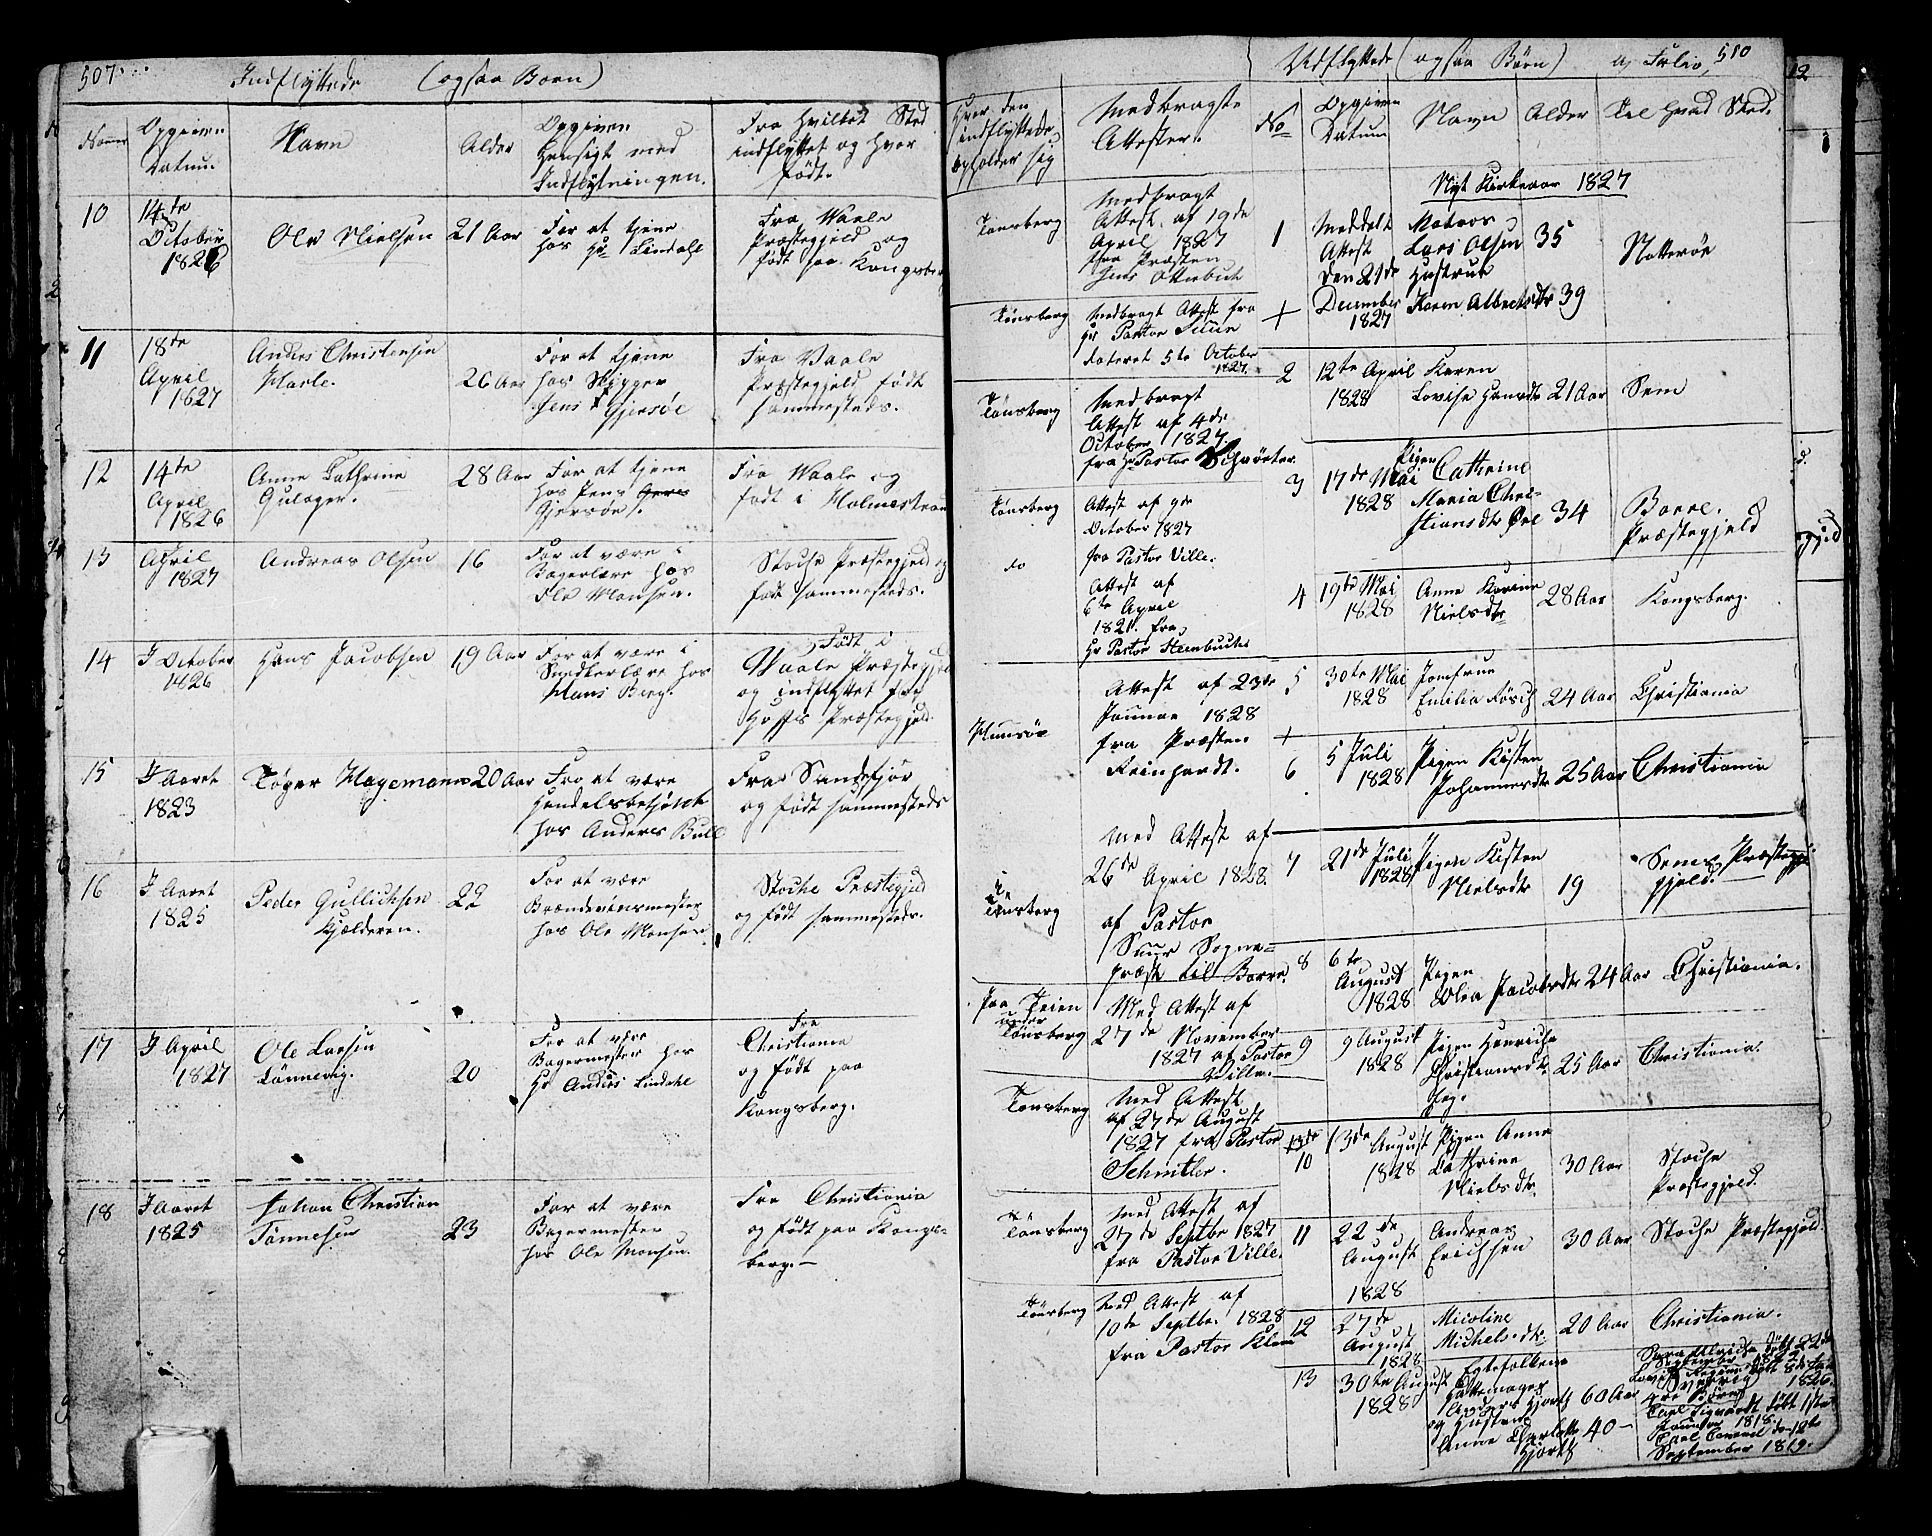 507.
Indflyttede (ogsaa Børn)
Opgiven
Datum.
Navn
Alder
Opgiven
Hensigt med
Indflytningen.
Fra hvilket Sted
indflyttet og hvor
født.
10
14de
October
1826
Ole Nielsen
21 Aar
For at tjene
hos Hr Lindahl
Fra Waale
Præstegjeld og
født paa Kongsberg
11
18de
April
1827
Anders Christensen
26 Aar
For at tjene
hos Skipper
Jens Gjersøe
Fra Vaale
Præstegjeld født
sammesteds.
12
14de
April
1826
Anne Cathrine
Gulager.
28 Aar
For at tjene
hos Jens
Gjersøe.
Fra Waale og
født i Holmestrand
13
April
1827
Andreas Olsen
16
For at være i
Bagerlære hos
Ole Monsen.
Stoche Præstegjeld og
født sammesteds.
14
I October
1826
Hans Jacobsen
19 Aar
For at være i
Snedkerlære hos
Hans Berg.
Født i
Waale Præstegjeld
og indflyttet fra
Hoffs Præstegjeld.
15
I Aaret
1823
Tøger Hagemann
20 Aar
For at være
Handelsbetjent
hos Anders Bull
Fra Sandefjor
og født sammesteds
16
I Aaret
1825
Peder Gullichsen
Kjælderen.
22
For at være
Brændevinsmester
hos Ole Monsen
Stoche Præstegjeld
og født sammesteds.
17
I April
1827
Ole Larsen
Lønnevig.
20
For at være
Bagermester hos
Hr Andreas Lindahl
Fra
Christiania
og født paa
Kongsberg.
18
I Aaret
1825
Johan Christian
Tønnesen
23
For at være
Bagermester
hos Ole Monsen.
Fra Christiania
og født paa Kongs-
berg.
Udflyttede (ogsaa Børn) a, Folio, 510
Hvor den
indflyttede
opholder sig
Medbragte
Attester.
No
Opgiven
Datum
Navn
Alder
Til hvad Sted.
Nyt Kirkeaar 1827
Tønsberg
Medbragt
Attest af 19de
April 1827
fra Præsten
Jens
1
Meddelt
Attest
den 21de
December
1827
Matros
Lars Olsen
Hustrue
Karen Albretsdtr
35
39
Nøtterøe
Tønsberg
Medbragt Attest fra
Hr Pastor
dateret 5te October
1827.
+
2
12te April
1828
Karen
Lovise Hansdtr
21 Aar
Sem
Tønsberg
Medbragt
Attest af 4de
October 1827
fra Hr Pastor
3
17de Mai
1828
Pigen
Cathrine
Maria Chri-
stiansdtr
34
Borre.
Præstegjeld
Tønsberg
Attest af 9de
October 1827
fra Pastor Wille.
do
Attest af
6te April
fra
Hr Pastor Steenbuch
4
19de Mai
1828
Anne Karine
Nielsdtr
28 Aar
Kongsberg.
Attest af 23de
Januar 1828
fra Præsten
Reinhardt.
5
30te Mai
1828
Jomfrue
Emilia Røsch
24 Aar
Christiania
+
6
5 Juli
1828
Pigen Kisten
Johannesdtr
25 Aar
Christiania
i
Tønsberg
Med Attest af
26de April 1828.
af Pastor
Sogne-
præst til Borre.
7
21de Juli
1828
Pigen Kisten
Nielsdtr
19
Sems Præste-
gjeld.
8
6te
August
1828
Pigen
Olea Jacobsdtr
24 Aar
Christiania.
Paa Teien
under
Tønsberg
Med Attest af
27de November
1827 af Pastor
Wille.
9
9 August
1828
Pigen Henriche
Christiansdtr
25 Aar
Christiania.
Tønsberg
Med Attest
af 27de August
1827 fra Pastor
Schnitler.
10
13de August
1828
Pigen Anne
Cathrine
Nielsdtr
30 Aar
Stoche
Præstegjeld.
Tønsberg
Med Attest af
27de Septbr 1827
fra Pastor Wille.
11
22de
August
1828
Andreas
Erichsen
30 Aar
Stoche Præstegjeld.
Tønsberg
Med Attest af
10de Septbr. 1828
fra Pastor Klem
12
27de
August
1828
Nicoline
Michelsdtr.
20 Aar
Christiania.
13
30te August
1828
Egtefolkene
Anders Hjorth 60 Aar
og Hustrue
Anne Charlotte 40
Hjorth
født 22de
September 1822
født 8de
Sverrig 1826.
Børn
Carl født 1ste
1818.
Carl do 12te
September 1819.